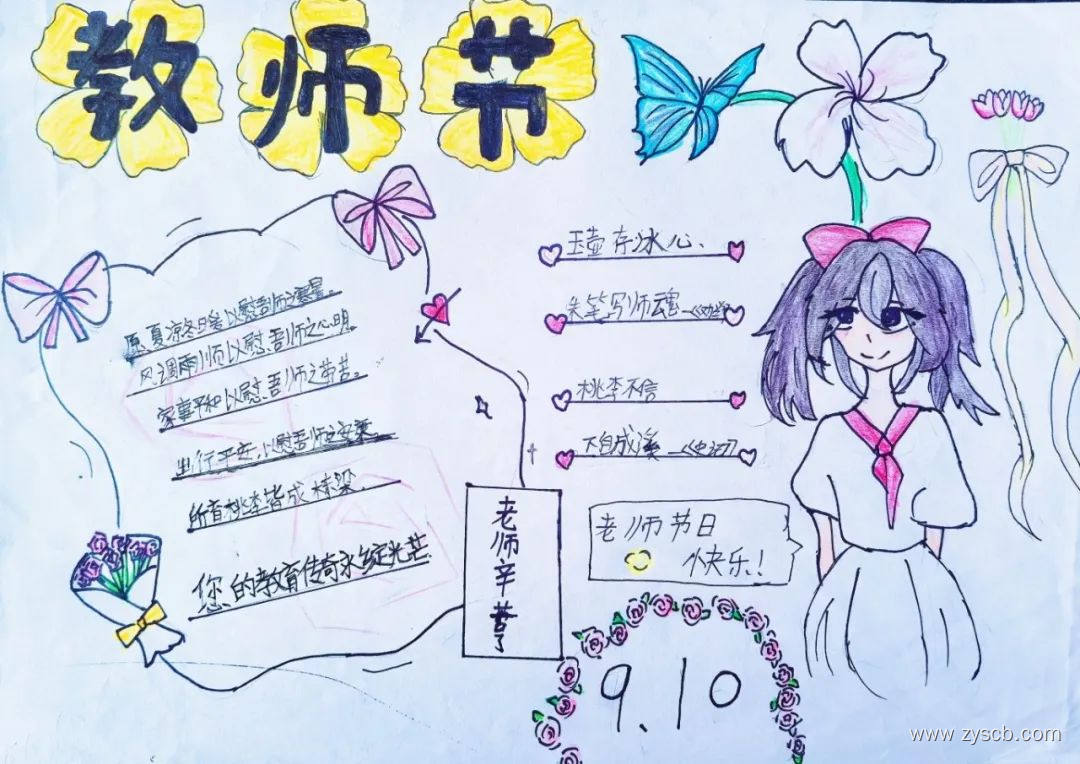 教师节
愿夏凉冬日暖以慰吾师之寒暑。
风调雨顺以慰吾师之心明。
家事平和以慰吾师之辛苦。
出行平安，以慰吾师之安乘
所育桃李皆成栋梁
您的教育传奇永绽光芒
玉壶存冰心、
朱笔写师魂
桃李不信
下自成溪
老师辛苦了
老师节日
快乐！
9.10
www.zyscb.com